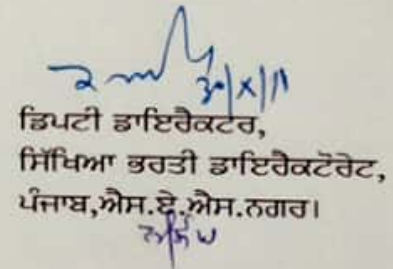 30/X/11
ਡਿਪਟੀ ਡਾਇਰੈਕਟਰ,
ਸਿੱਖਿਆ ਭਰਤੀ ਡਾਇਰੈਕਟੋਰੇਟ,
ਪੰਜਾਬ,ਐਸ.ਏ.ਐਸ.ਨਗਰ।